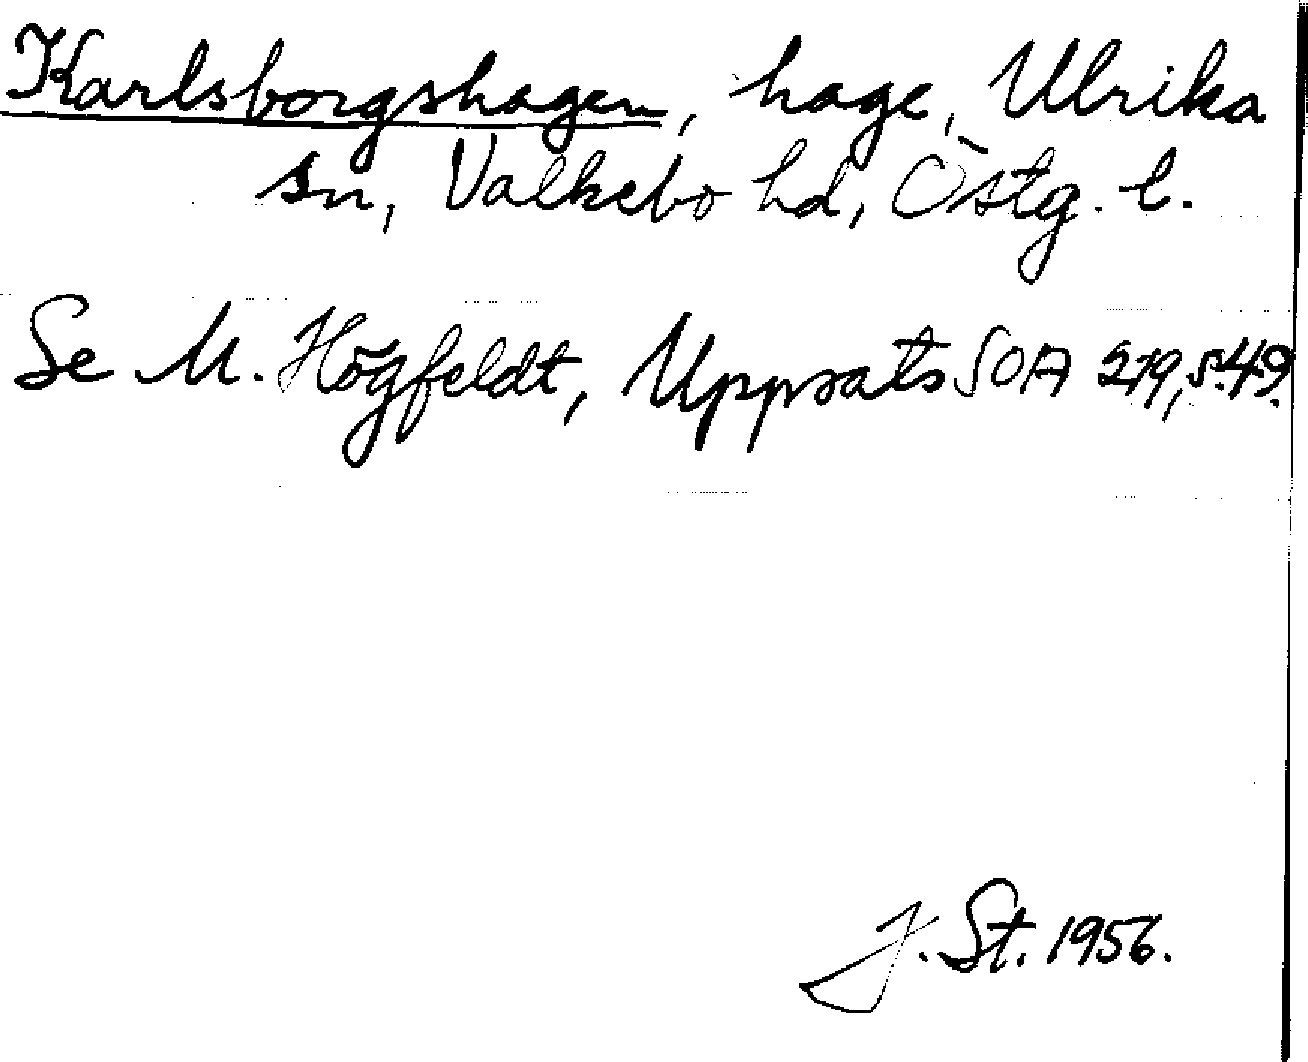 Karlsborgshagen, hage, Ulrika
sn, Valkebo hd, Östg. l.
Se M. Högfeldt, Uppsats SOA 279, s.49.
J. St. 1956.